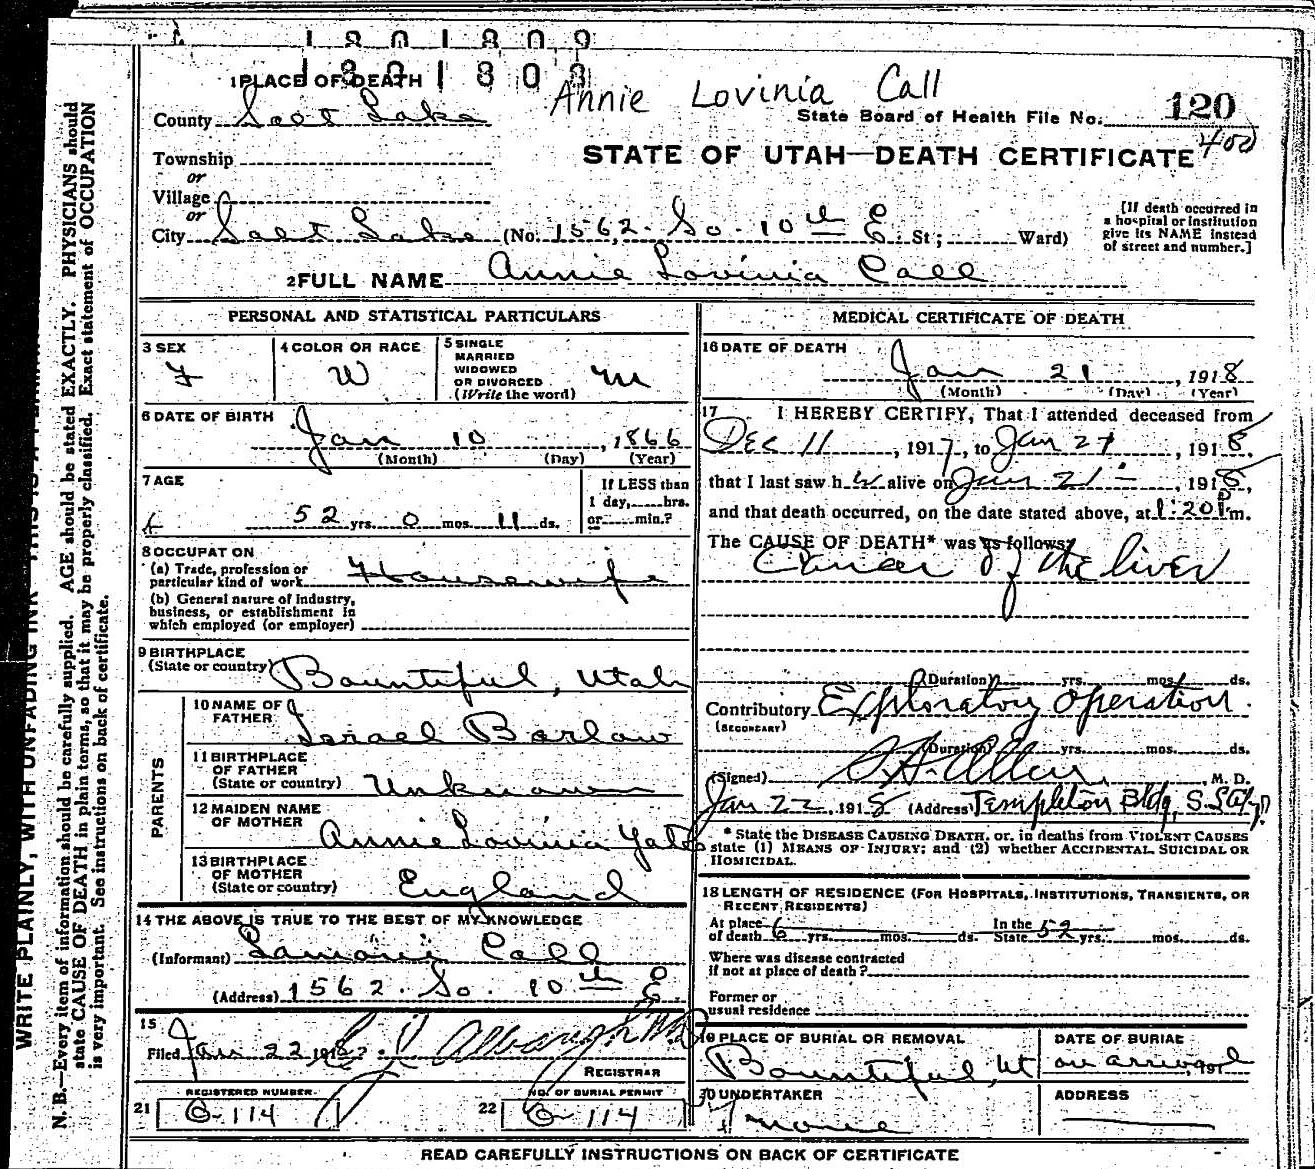 1801809
1801808
1 PLACE OF DEATH
Annie Lovinia Call
County Salt Lake
State Board of Health File No. 120
400
Township
or
Village
or
STATE OF UTAH—DEATH CERTIFICATE
City Salt Lake (No. 1562 So. 10th E St; Ward)
[If death occurred in
a hospital or institution
give its NAME instead
of street and number.]
2 FULL NAME Annie Lovinia Call
PERSONAL AND STATISTICAL PARTICULARS
3 SEX
F
4 COLOR OR RACE
W
5 SINGLE
MARRIED
WIDOWED
OR DIVORCED
(Write the word)
M
6 DATE OF BIRTH
Jan 10, 1866
(Month) (Day) (Year)
7 AGE
52 yrs. 0 mos. 11 ds.
If LESS than
1 day, hrs.
or min.?
8 OCCUPATION
(a) Trade, profession or
particular kind of work Housewife
(b) General nature of industry,
business, or establishment in
which employed (or employer)
9 BIRTHPLACE
(State or country) Bountiful, Utah
PARENTS
10 NAME OF
FATHER Israel Barlow
11 BIRTHPLACE
OF FATHER
(State or country) Unknown
12 MAIDEN NAME
OF MOTHER
Annie Lovinia Yates
13 BIRTHPLACE
OF MOTHER
(State or country) England
14 THE ABOVE IS TRUE TO THE BEST OF MY KNOWLEDGE
(Informant) Lamoni Call
(Address) 1562 So. 10th E
15
Filed Jan 22 191
REGISTRAR
REGISTERED NUMBER
21 G-114
NO. OF BURIAL PERMIT
22 G-114
MEDICAL CERTIFICATE OF DEATH
16 DATE OF DEATH
Jan 21, 1918
(Month) (Day) (Year)
17 I HEREBY CERTIFY, That I attended deceased from
Dec 11, 1917, to Jan 21, 1918,
that I last saw h er alive on Jan 21, 1918,
and that death occurred, on the date stated above, at 1:20 P m.
The CAUSE OF DEATH* was as follows:
Cancer of the liver
(Duration) yrs. mos. ds.
Contributory Exploratory operation.
(SECONDARY)
(Duration) yrs. mos. ds.
(Signed) M. D.
Jan 22, 1918 (Address) Templeton Bldg,
* State the DISEASE CAUSING DEATH, or, in deaths from VIOLENT CAUSES
state (1) MEANS OF INJURY; and (2) whether ACCIDENTAL, SUICIDAL OR
HOMICIDAL.
18 LENGTH OF RESIDENCE (FOR HOSPITALS, INSTITUTIONS, TRANSIENTS, OR
RECENT RESIDENTS)
At place
of death 6 yrs. mos. ds.
In the
State 52 yrs. mos. ds.
Where was disease contracted
if not at place of death?
Former or
usual residence
19 PLACE OF BURIAL OR REMOVAL
Bountiful, Ut
DATE OF BURIAL
on arrival, 191
20 UNDERTAKER
none
ADDRESS
READ CAREFULLY INSTRUCTIONS ON BACK OF CERTIFICATE
WRITE PLAINLY, WITH UNFADING INK
N. B.—Every item of information should be carefully supplied. AGE should be stated EXACTLY. PHYSICIANS should
state CAUSE OF DEATH in plain terms, so that it may be properly classified. Exact statement of OCCUPATION
is very important. See instructions on back of certificate.